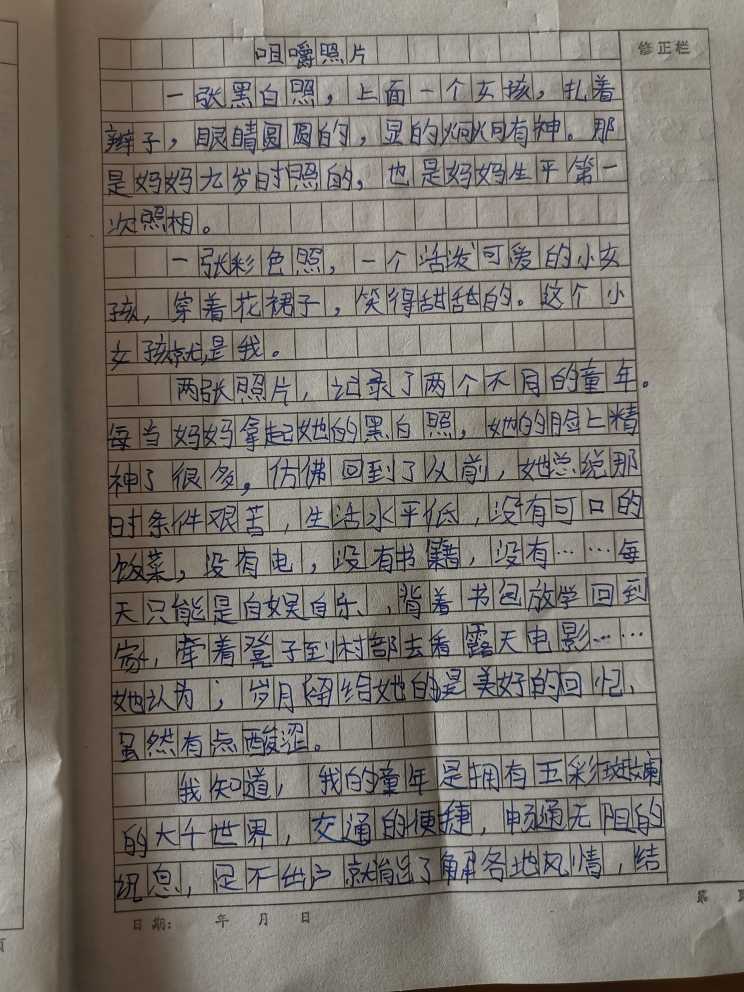 修正栏
咀嚼照片
一张黑白照，上面一个女孩，扎着
辫子，眼睛圆圆的，显的炯炯有神。那
是妈妈九岁时照的，也是妈妈生平第一
次照相。
一张彩色照，一个活泼可爱的小女
孩，穿着花裙子，笑得甜甜的。这个小
女孩就是我。
两张照片，记录了两个不同的童年。
每当妈妈拿起她的黑白照，她的脸上精
神了很多。仿佛回到了以前，她总说那
时条件艰苦，生活水平低，没有可口的
饭菜，没有电，没有书籍，没有……每
天只能是自娱自乐、，背着书包放学回到
家，牵着凳子到村部去看露天电影……
她认为；岁月留给她的是美好的回忆、
虽然有点酸涩。
我知道，我的童年是拥有五彩斑斓
的大千世界，交通的便捷，畅通无阻的
讯息，足不出户就能了解各地风情，结
日期： 年 月 日
第 页